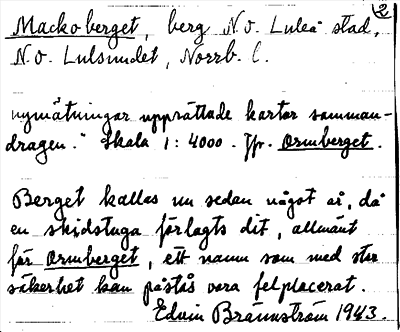 2
Mackoberget, berg N.O. Luleå stad,
N.O. Lulsundet, Norrb. l.
nymätningar upprättade kartor samman-
dragen." Skala 1:4000. Jfr. Ormberget.
Berget kallas nu sedan något år, då
en skidstuga förlagts dit, allmänt
för Ormberget, ett namn som med stor
säkerhet kan påstås vara felplacerat.
Edvin Brännström 1943.